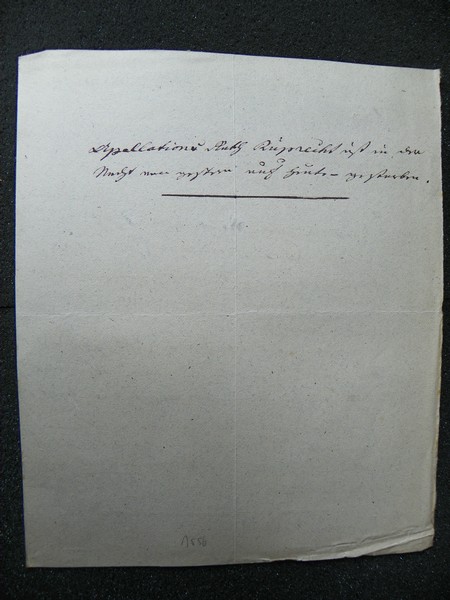 Apellations Rath Ruprecht ist in der
Nacht von gestern auf heute gestorben.
1856